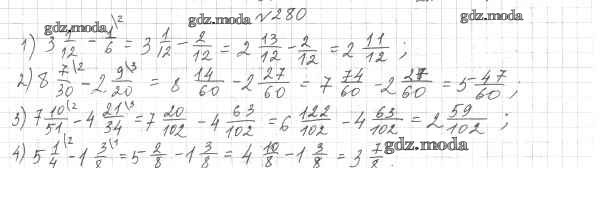 gdz.moda gdz.moda №280 gdz.moda
1) 3 1/12 - 1/6 \2 = 3 1/12 - 2/12 = 2 13/12 - 2/12 = 2 11/12 ;
2) 8 7/30 \2 - 2 9/20 \3 = 8 14/60 - 2 27/60 = 7 74/60 - 2 27/60 = 5 47/60 ;
3) 7 10/51 \2 - 4 21/34 \3 = 7 20/102 - 4 63/102 = 6 122/102 - 4 63/102 = 2 59/102 ;
4) 5 1/4 \2 - 1 3/8 \1 = 5 2/8 - 1 3/8 = 4 10/8 - 1 3/8 = 3 7/8 .
gdz.moda